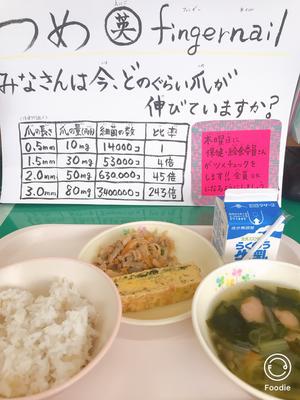 つめ 英 fingernail
みなさんは今、どのぐらい爪が
伸びていますか?
爪の長さ 爪の量(両) 細菌の数 比率
0.5mm 10mg 14000コ 1
1.5mm 30mg 53000コ 4倍
2.0mm 50mg 630,000コ 45倍
3.0mm 80mg 3400000コ 243倍
木曜日に
保健・給食委員さん
がツメチェックを
します!!全員
になるようにしましょう
牛乳
Foodie